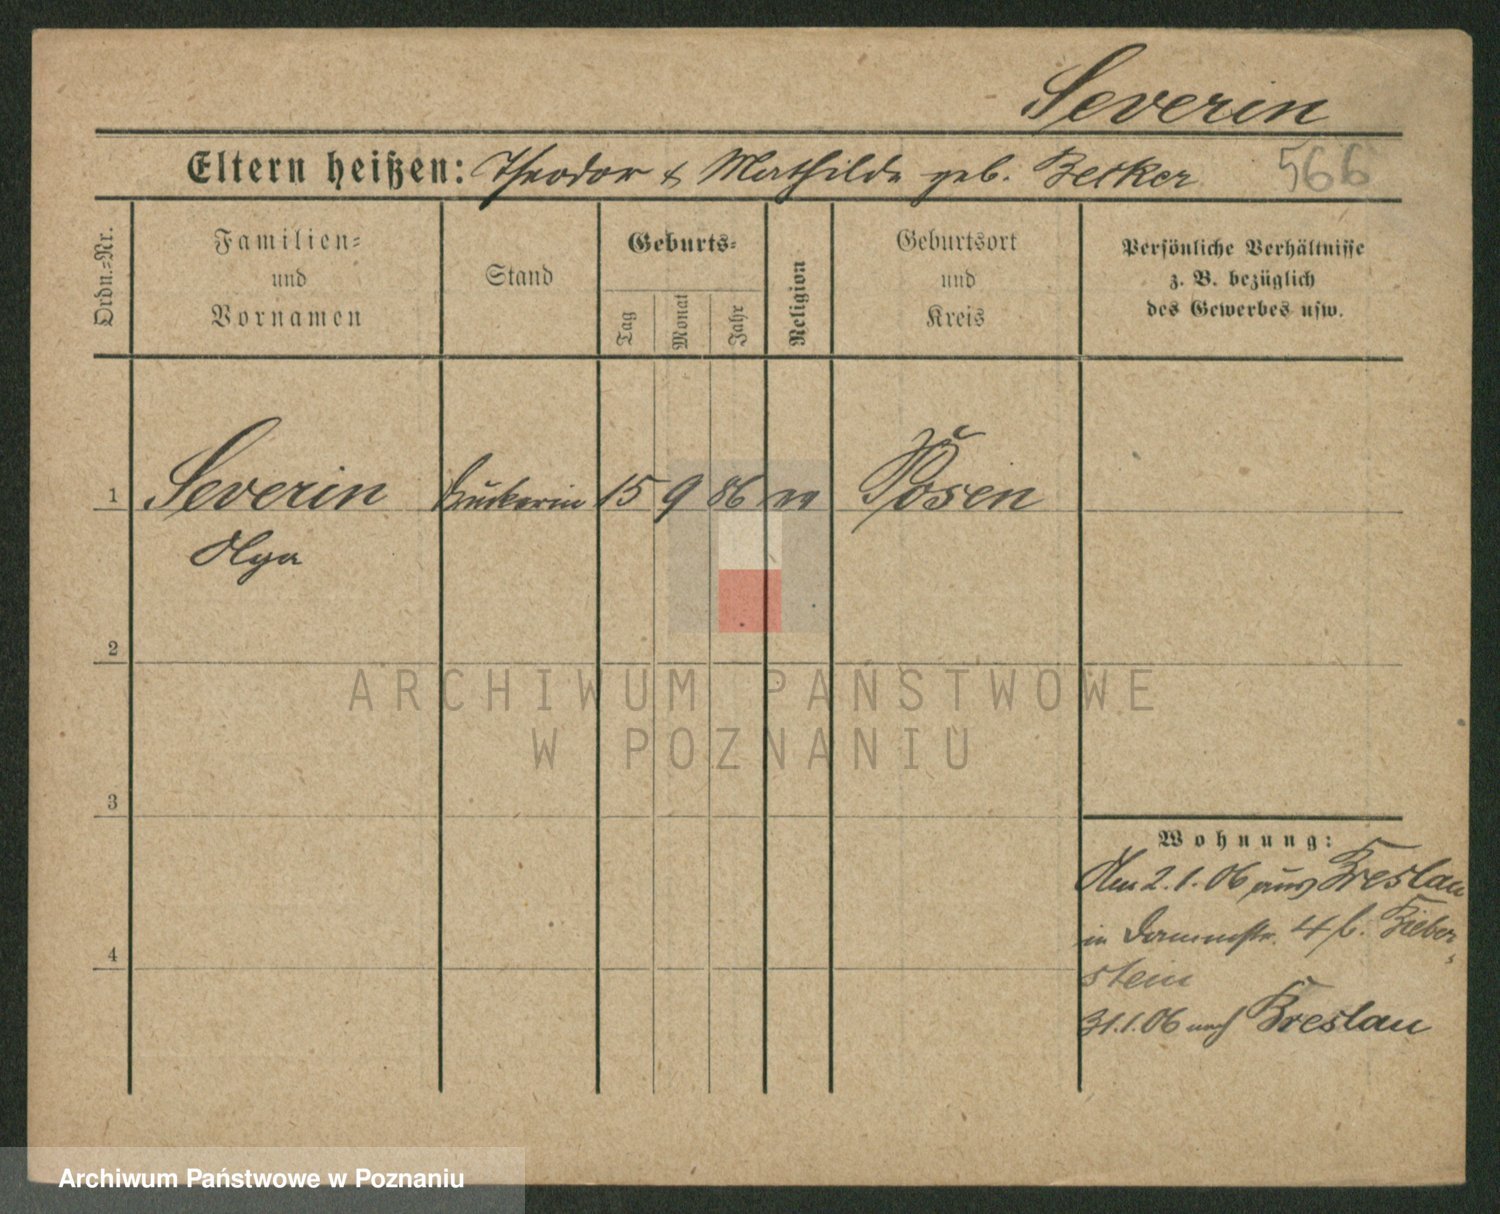 Severin
Eltern heißen: Theodor & Mathilde geb. Becker 566
Ordn.=Nr.
Familien=
und
Vornamen
Stand
Geburts=
Tag
Monat
Jahr
Religion
Geburtsort
und
Kreis
Persönliche Verhältnisse
z. B. bezüglich
des Gewerbes usw.
1 Severin Druckerin 15 9 86 ev Posen
Olga
2
ARCHIWUM PAŃSTWOWE
W POZNANIU
3
Wohnung:
Am 2.1.06 aus Breslau
in Dammstr. 4 b. Bieber
4
stein
31.1.06 nach Breslau
Archiwum Państwowe w Poznaniu